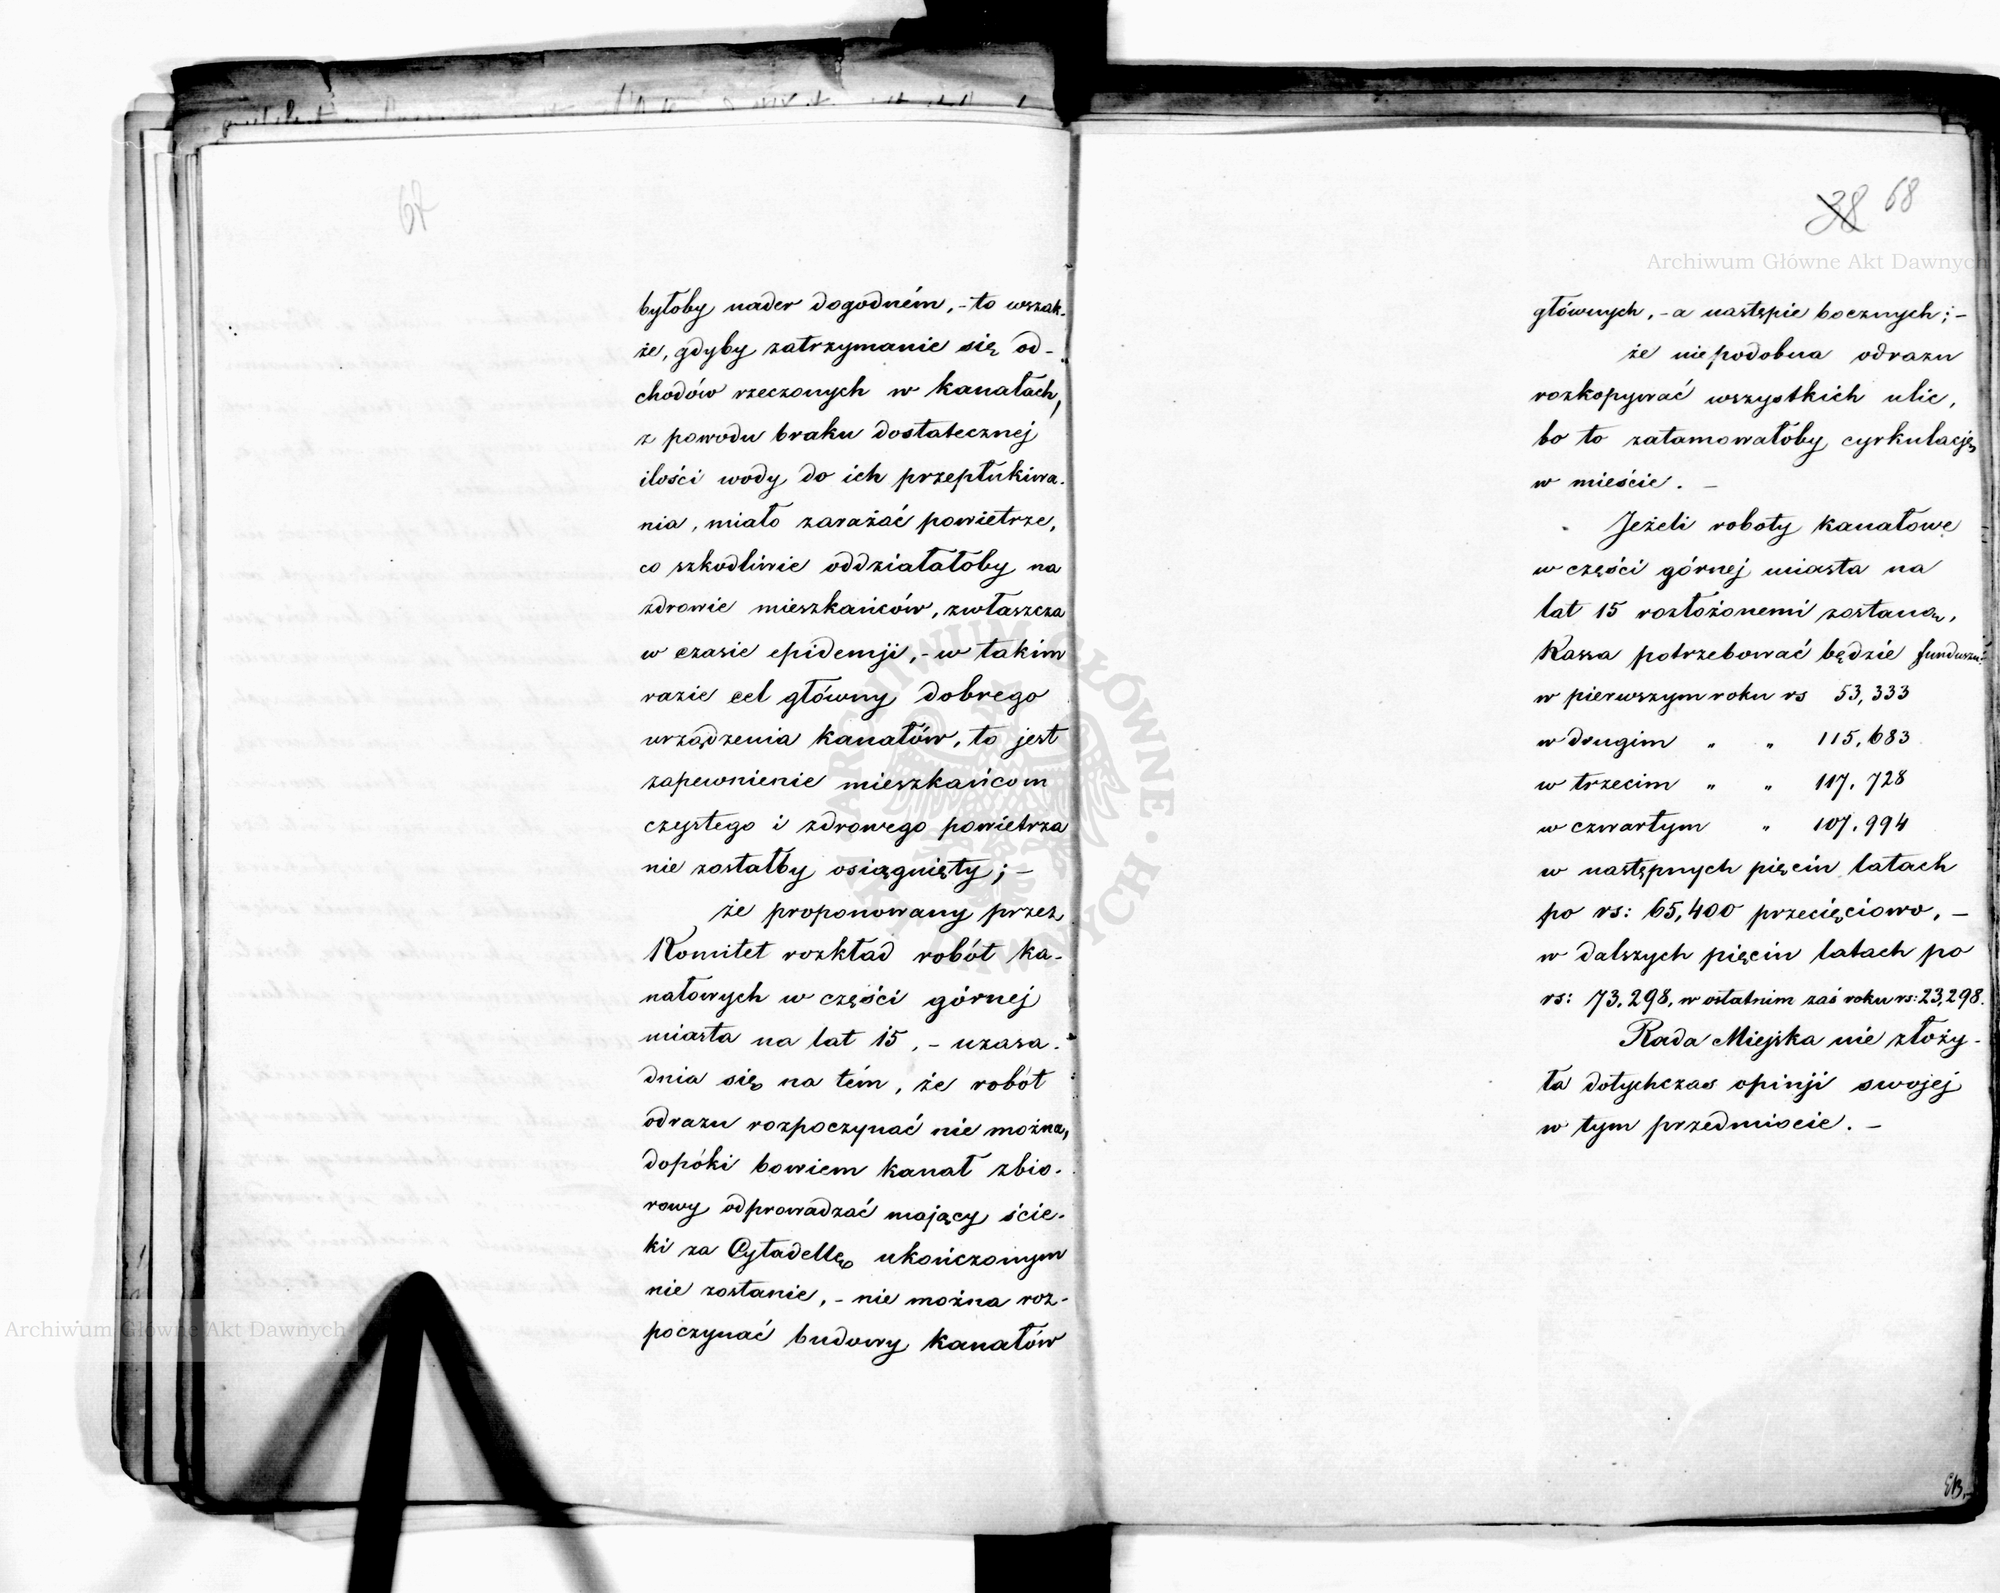 67
byłoby nader dogodném, - to wszak-
że, gdyby zatrzymanie się od-
chodów rzeczonych w kanałach,
z powodu braku dostatecznej
ilości wody do ich przepłukiwa-
nia, miało zarażać powietrze,
co szkodliwie oddziałałoby na
zdrowie mieszkańców, zwłaszcza
w czasie epidemji, - w takim
razie cel główny dobrego
urządzenia kanałów, to jest
zapewnienie mieszkańcom
czystego i zdrowego powietrza
nie zostałby osiągnięty; -
że proponowany przez
Komitet rozkład robót ka-
nałowych w części górnej
miasta na lat 15, - uzasa-
dnia się na tém, że robót
odrazu rozpoczynać nie można,
dopóki bowiem kanał zbio-
rowy odprowadzać mający ście-
ki za Cytadellę ukończonym
nie zostanie, - nie można roz-
poczynać budowy kanałów
38 68
Archiwum Główne Akt Dawnych
głównych, - a następie bocznych; -
że niepodobna odrazu
rozkopywać wszystkich ulic,
bo to zatamowałoby cyrkulację
w mieście. -
Jeżeli roboty kanałowe
w części górnej miasta na
lat 15 rozłożonemi zostaną,
Kassa potrzebować będzie funduszu:
w pierwszym roku rs 53,333
w drugim " " 115,683
w trzecim " " 117,728
w czwartym " 107,994
w następnych pięciu latach
po rs: 65,400 przecięciowo, -
w dalszych pięciu latach po
rs: 73,298, w ostatnim zaś roku rs: 23,298.
Rada Miejska nie złoży-
ła dotychczas opinji swojej
w tym przedmiocie. -
Archiwum Główne Akt Dawnych
ARCHIWUM GŁÓWNE AKT DAWNYCH